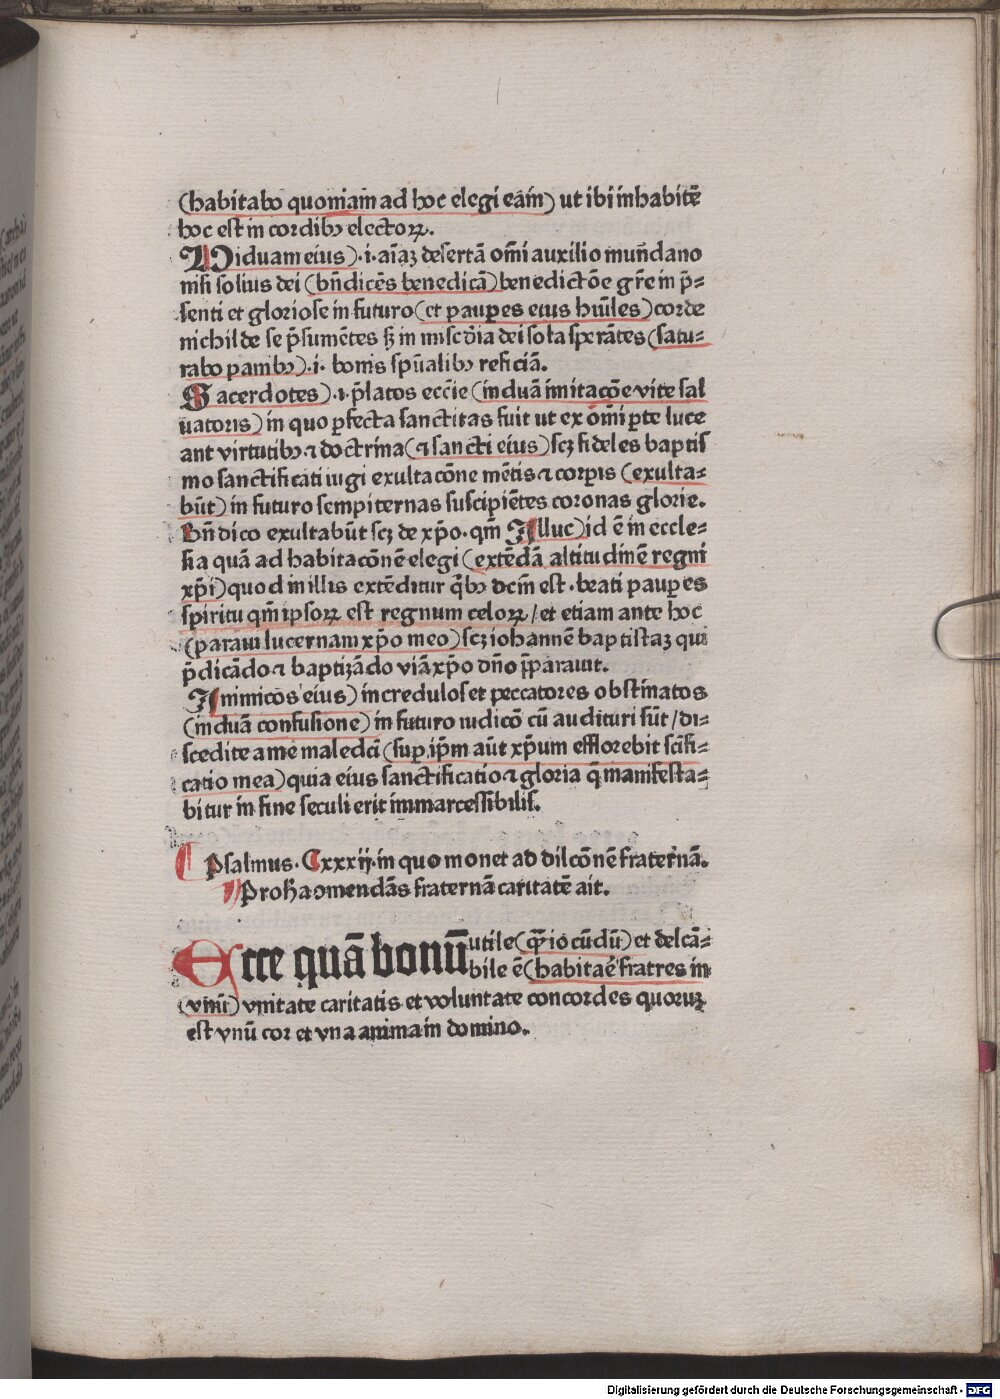 (habitabo quoniam ad hoc elegi eam̄) ut ibi inhabitē
hoc est in cordibꝫ electoꝝ.
Uiduam eius).i. aīaꝫ desertā om̄i auxilio mun̄dano
nisi solius dei (bn̄dicēs benedicā) benedictōe gr̄e in p̄-
senti et gloriose in futuro (et pauꝑes eius hūīles) corde
nichil de se p̄sumētes sꝫ in mīscd̄ia dei sola sperātes (satu-
rabo panibꝫ).i. bonis spūalibꝫ reficiā.
Sacerdotes).i. p̄latos ecc̄ie (induā imitacōe vite sal
uatoris) in quo ꝑfecta sanctitas fuit ut ex om̄i ꝑte luce
ant virtutibꝫ ⁊ doctrina (⁊ sancti eius) scꝫ fideles baptis
mo sanctificati iugi exultacōne mētis ⁊ corꝑis (exulta-
būt) in futuro sempiternas suscipiētes coronas glorie.
Bn̄ dico exultabūt scꝫ de xp̄o. qm̄ Illuc) id ē in eccle-
sia quā ad habitacōnē elegi (extēdā altitudinē regni
xp̄i) quod in illis extēditur q̄bꝫ dc̄m est. beati pauꝑes
spiritu qm̄ ipsoꝝ est regnum celoꝝ / et etiam ante hoc
(paraui lucernam xp̄o meo) scꝫ iohannē baptistaꝫ qui
p̄dicādo ⁊ baptizādo viā xp̄o dn̄o p̄parauit.
Inimicos eius) incredulos et peccatores obstinatos
(induā confusione) in futuro iudicō cū audituri sūt / di-
scedite a me maledc̄i (suꝑ ip̄m aūt xp̄um efflorebit sc̄ifi-
catio mea) quia eius sanctificatio ⁊ gloria q̄ manifesta-
bitur in fine seculi erit immarcessibilis.
Psalmus. Cxxxij. in quo monet ad dilcōnē fraternā.
Prophā omendās fraternā caritatē ait.
Ecce quā bonū utile (q̄ iocūdū) et delcā-
bile ē (habitaē fratres in
(vnū) vnitate caritatis et voluntate concordes quoruꝫ
est vnū cor et vna anima in domino.
Digitalisierung gefördert durch die Deutsche Forschungsgemeinschaft - DFG